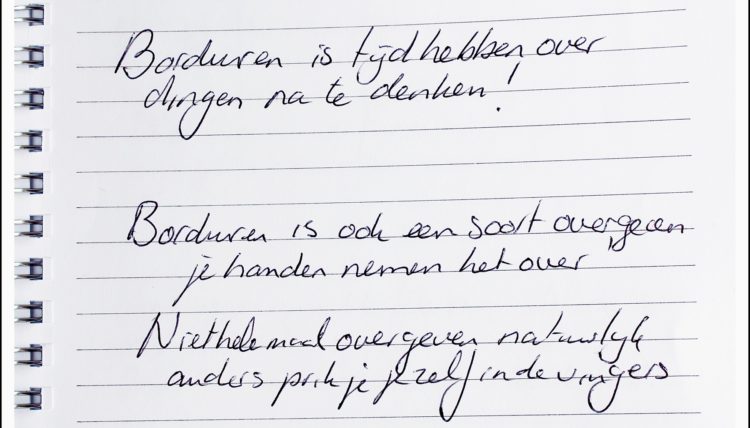 Borduren is tijd hebben over
dingen na te denken!
Borduren is ook een soort overgeven
je handen nemen het over
Niet helemaal overgeven natuurlijk
anders prik je jezelf in de vingers